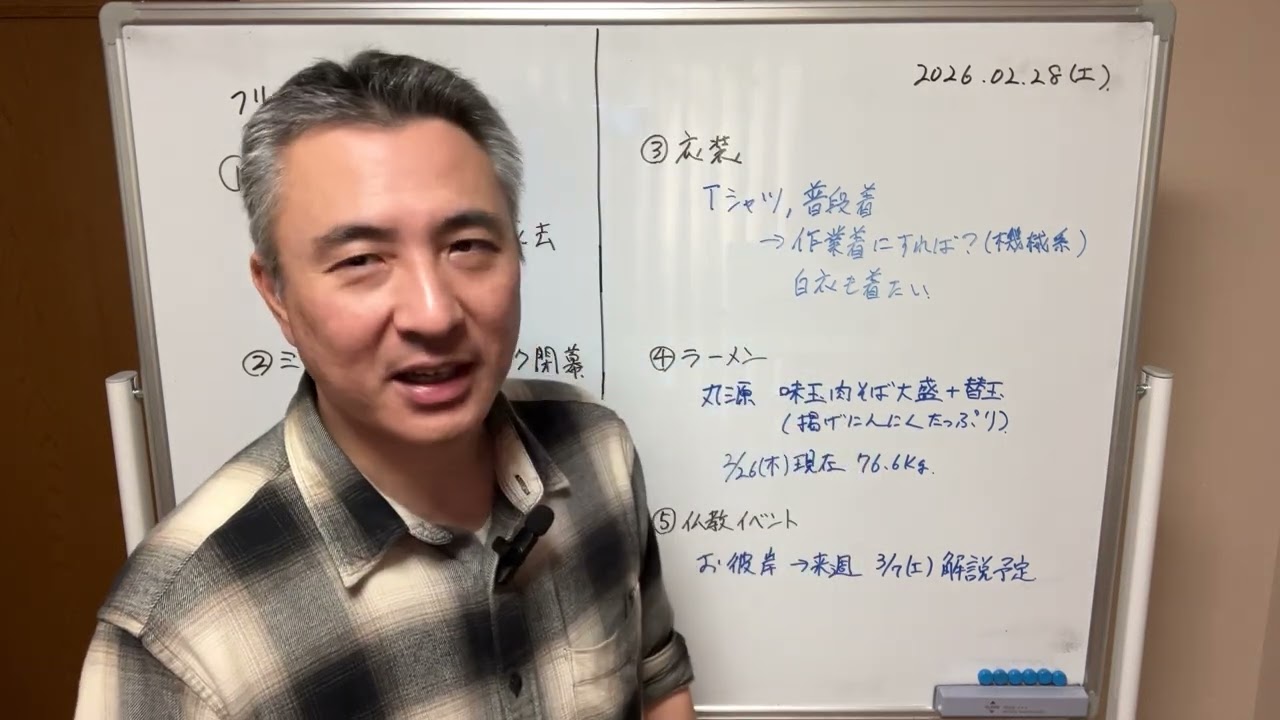 フリ
①
去
② ミ
ク閉幕
2026.02.28(土)
③ 衣装
Tシャツ, 普段着
→作業着にすれば?(機械系)
白衣も着たい
④ ラーメン
丸源 味玉肉そば大盛+替玉
(揚げにんにくたっぷり)
2/26(木)現在 76.6kg.
⑤ 仏教イベント
お彼岸→来週 3/7(土)解説予定